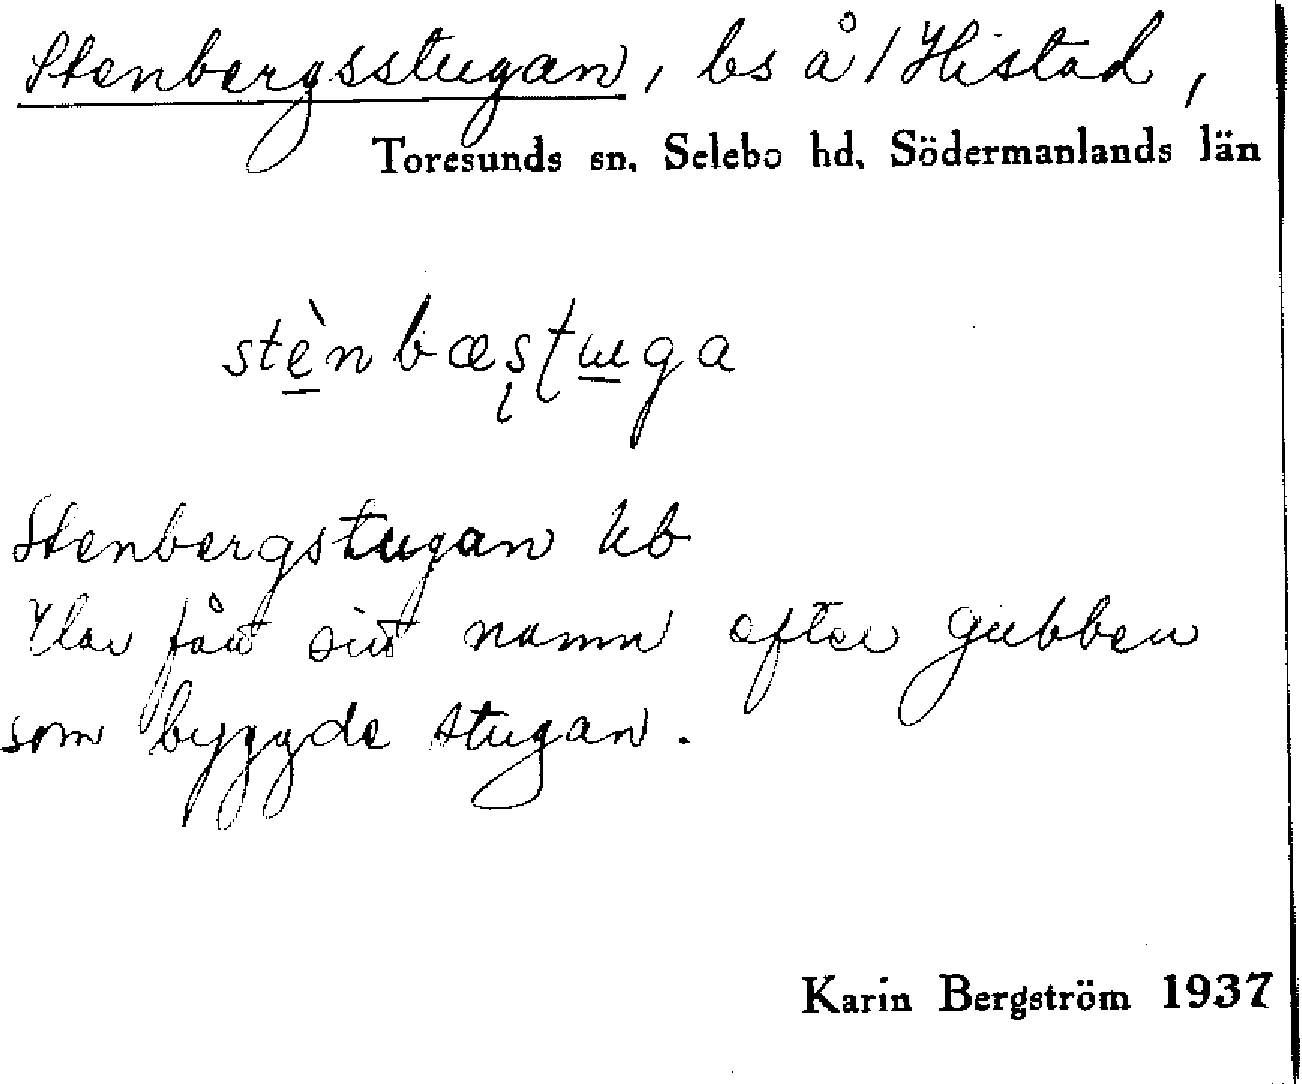 Stenbergsstugan, ls å / Histad,
Toresunds sn. Selebo hd. Södermanlands län
stènbæstɯga
Stenbergstugan kb
Har fått sitt namn efter gubben
som byggde stugan.
Karin Bergström 1937